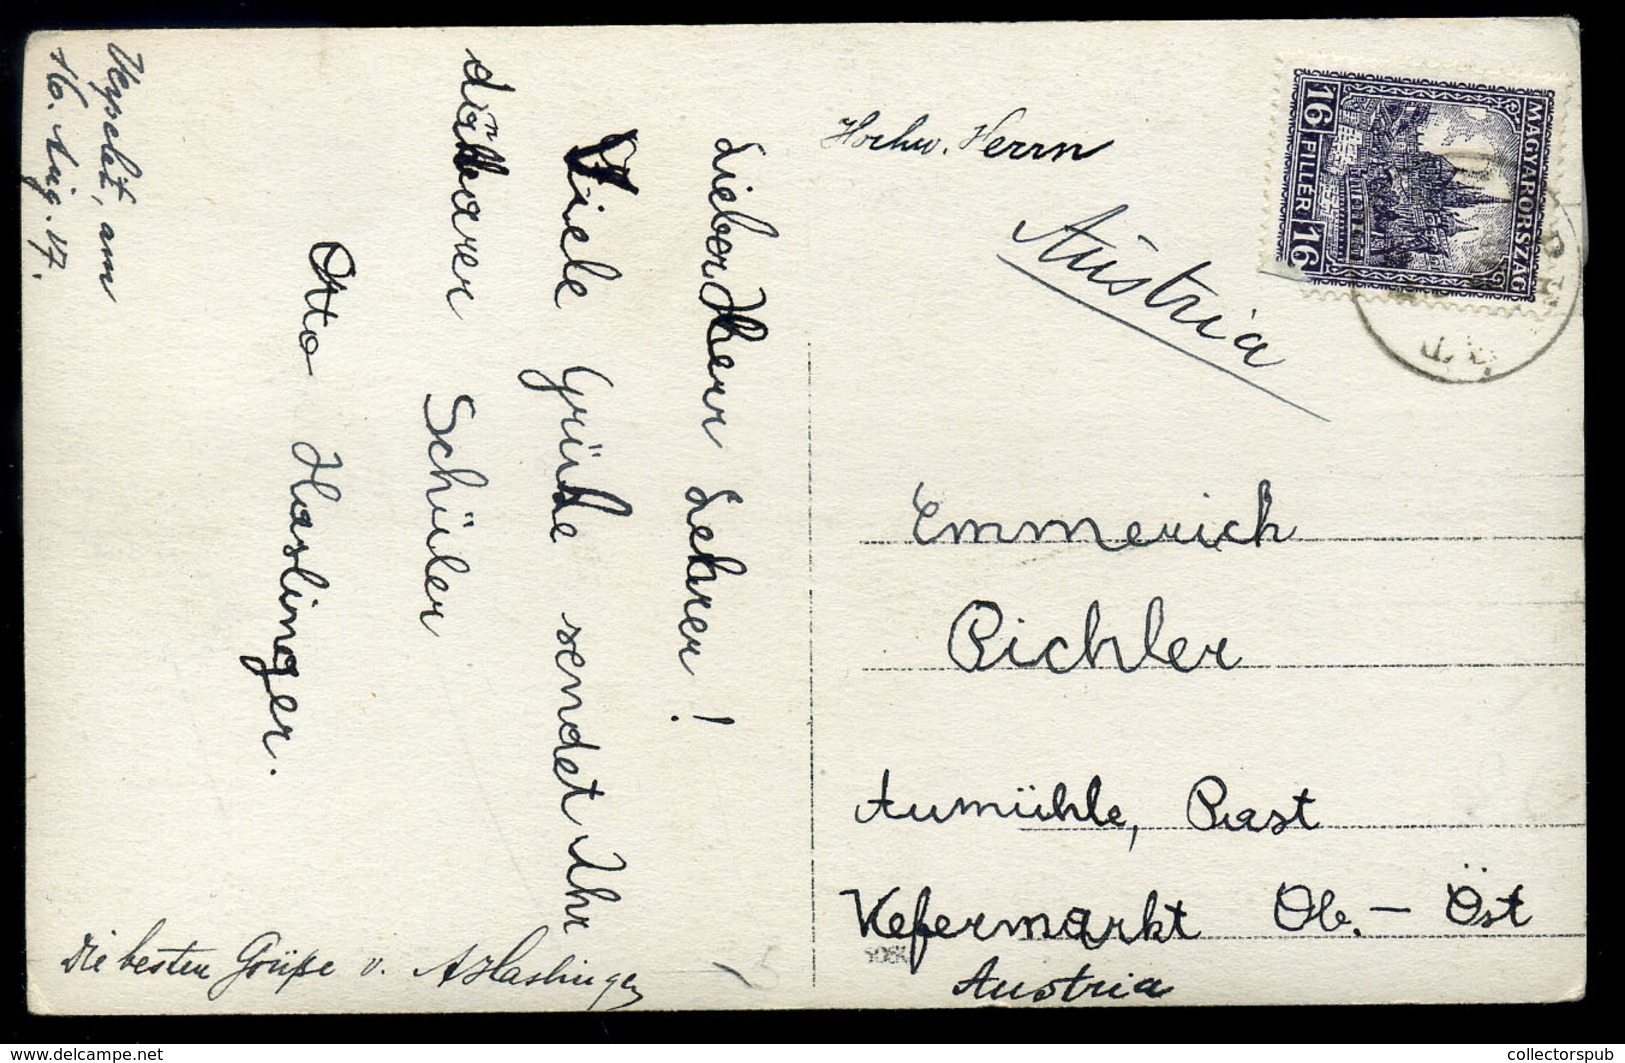 am
16. Aug. 17.
Lieber Herr Lehrer!
Viele Grüße sendet Ihr
dankbarer Schüler
Otto Haslinger.
Die besten Grüße v. A Haslinger
Hochw. Herrn
Austria
Emmerich
Pichler
Aumühle, Post
Kefermarkt Ob. - Öst
Austria
MAGYARORSZÁG
16 FILLÉR 16
collectorspub